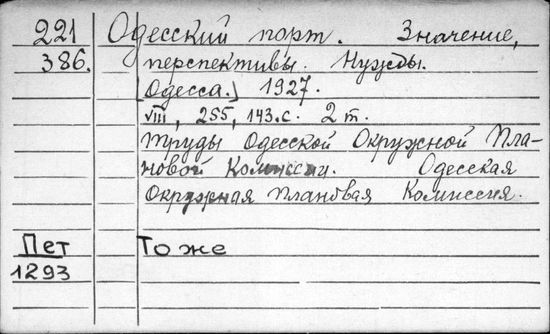 221 Одесский порт. Значение,
386. перспективы. Нужды.
[Одесса.] 1927.
VIII, 255, 143.с. 2 т.
Труды Одесской Окружной Пла-
новой Комиссии. Одесская
Окружная Плановая Комиссия.
Пет То же
1293